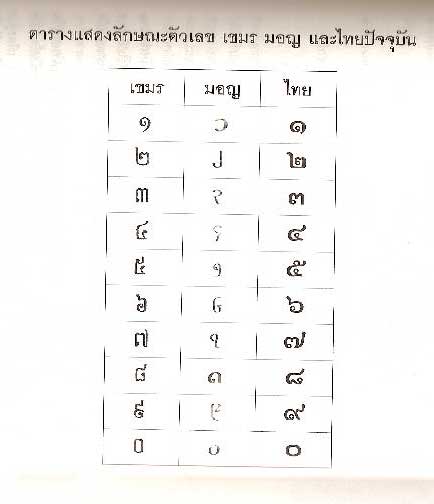 ตารางแสดงลักษณะตัวเลข เขมร มอญ และไทยปัจจุบัน
เขมร มอญ ไทย
១ ၁ ๑
២ ၂ ๒
៣ ၃ ๓
៤ ၄ ๔
៥ ၅ ๕
៦ ၆ ๖
៧ ၇ ๗
៨ ၈ ๘
៩ ၉ ๙
០ ၀ ๐